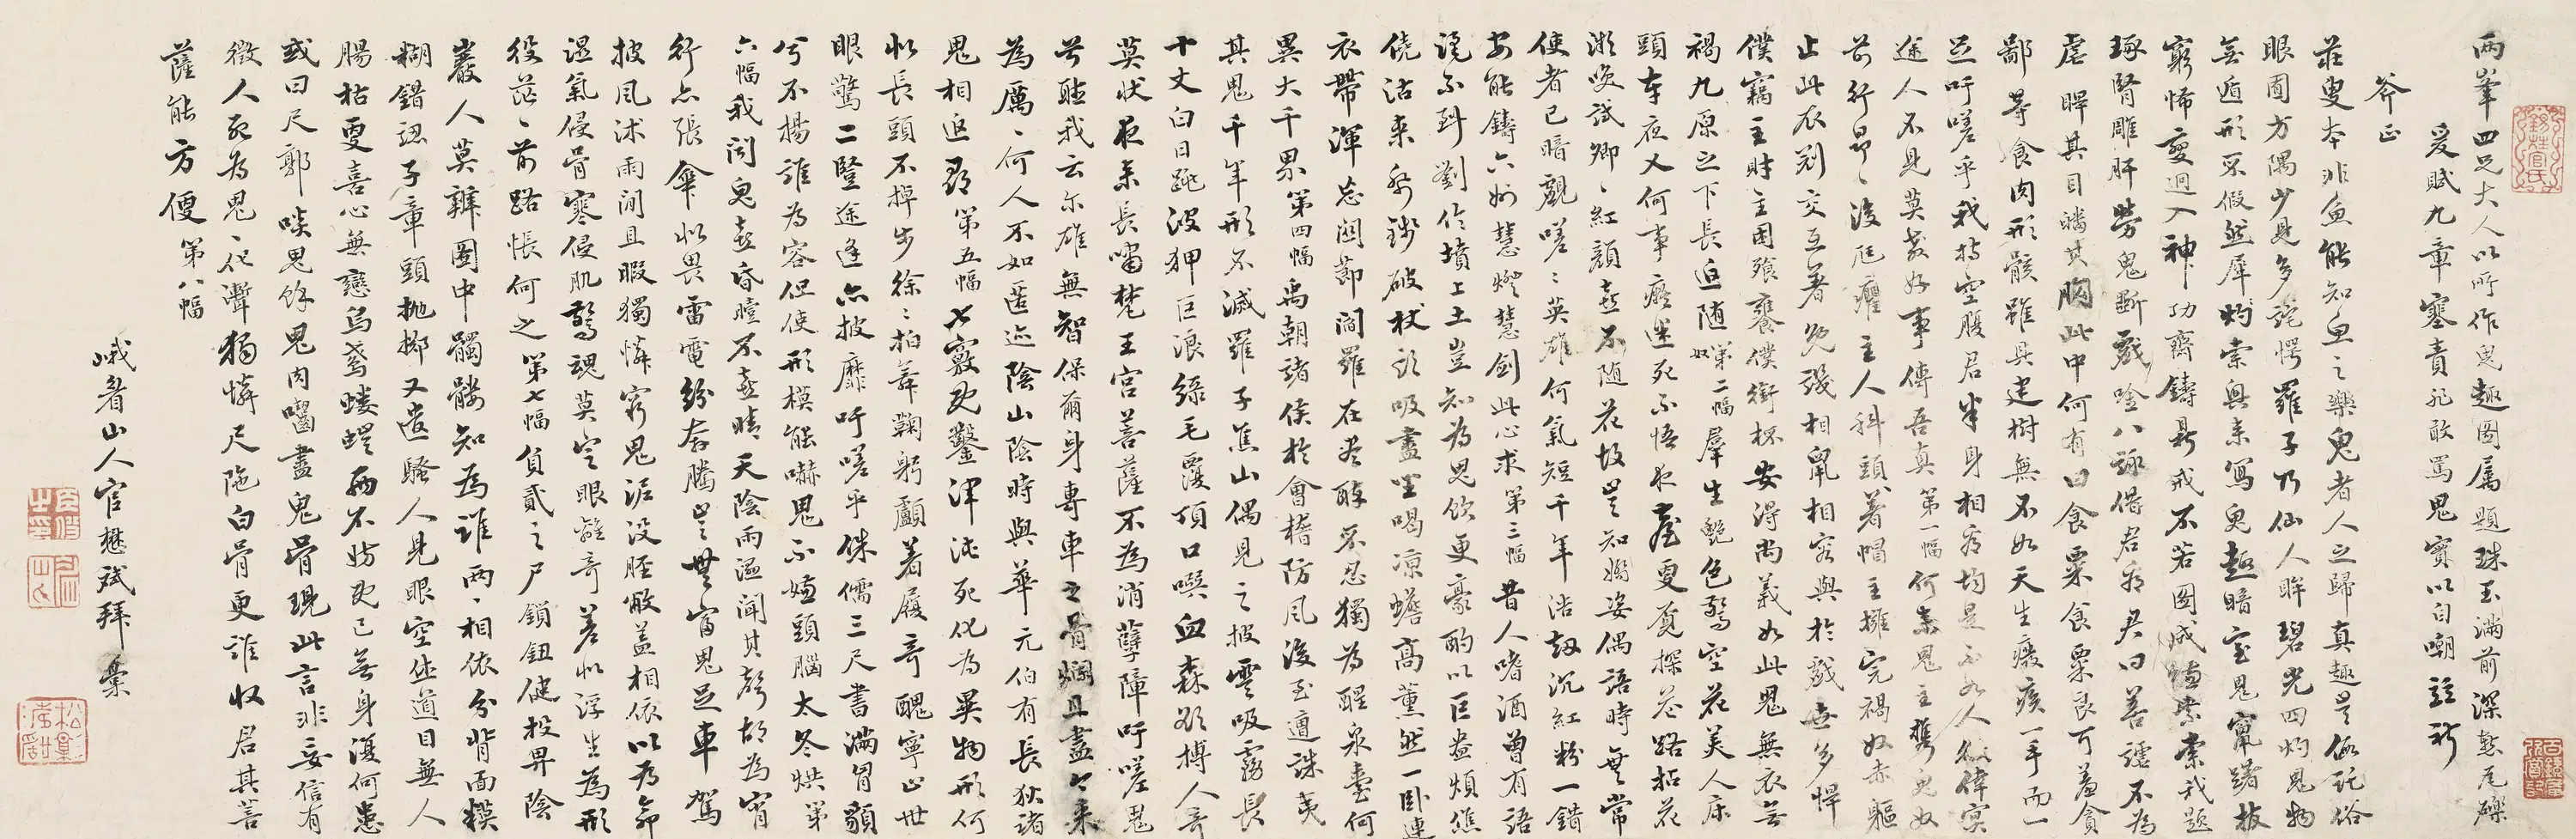 兩峯四兄大人以所作鬼趣圖屬題珠玉滿前深慙瓦礫
爰賦九章塞責非敢罵鬼實以自嘲讬祈
斧正
莊叟本非魚能知魚之樂鬼者人之歸真趣豈偽託俗
眼囿方隅少見多詫愕羅子乃仙人眸碧光四灼鬼物
無遁形不假然犀灼索輿來寫鬼趣暗室鬼竄躇技
窮怖變迴入神功齊鑄鼎戒不若圖成牘索我題
琢腎雕肝勞鬼斲戲唫八詠借君看君曰善謔不為
虐睅其目皤其胸此中何有曰食粟食粟良可羞貪
鄙等食肉形骸雖具建樹無不如天生癈疾一手而一
足吁嗟乎我持空腹君半身相看均是
途人不見莫教好事傳吾真第一幅何來鬼主攜鬼奴
前行昂昂後尪癯主人科頭著帽主擁完褐奴赤軀
止此衣冠交互著免致相鼠相容與於戲世多悍
僕竊主財主困飱饔僕銜杯安得尚義如此鬼無衣無
褐九原之下長追隨第二幅羣生艷色驚空花美人床
頭本夜叉何事癡迷死不悟夜臺更覓探花路拈花
漸喚試卿卿紅顏喜不隨花故豈知嫋姿偶語時無常
使者已暗覷嗟嗟英雄何氣短千年浩劫沉紅粉一錯
安能鑄六州慧燈慧劍此心求第三幅昔人嗜酒曾有語
說不到劉伶墳上土豈知為鬼飲更豪酌以巨盎煩焦
僥沽來移鍤破杖頭吸盡里喝涼蟾高薰然一卧連
衣帶渾忘關節閻羅在卷醉不忍獨為醒泉臺何
異大千界第四幅禹朝諸侯於會稽防風後至遭誅夷
其鬼千年形不滅羅子焦山偶見之披雲吸霧長
十丈白日跳波狎巨浪綠毛覆頂口噀血森欲搏人奇
莫狀夜來長嘯梵王宮菩薩不為消孽障吁嗟鬼
兮聽我云尓雄無智保爾身專車之骨爛且盡今來
為厲厲何人不如匿迹陰山陰時與華元伯有長狄諸
鬼相追尋第五幅七竅既鑿渾沌死化為異物形何
似長頭不掉步徐徐拍舞鞠躬顱著屐奇醜寧止世
眼驚二豎途逢亦披靡吁嗟乎侏儒三尺書滿胷顒
兮不揚誰為容但使形模能嚇鬼不嫌頭腦太冬烘第
六幅我聞鬼喜昏曀不喜晴天陰雨溼聞其聲胡為宵
行亦張傘似畏雷電紛奔騰豈無甯鬼足車駕
披風沐雨閒且暇獨憐窮鬼泥沒脛敝蓋相依以為命
溼氣侵骨寒侵肌驚魂莫定眼離奇差似浮生為形
役茫茫前路悵何之第七幅負貳之尸鎖鈕健投畀陰
巖人莫辨圖中髑髏知為誰兩兩相依分背面模
糊錯認子章頭拋擲又遭騷人見眼空世道目無人
腸枯更喜心無戀烏鳶螻螘兩不妨既已無身復何患
或曰尺郭啖鬼餘鬼肉囓盡鬼骨現此言非妄信有
徵人死為鬼鬼化聻獨憐尺陁白骨更誰收君其菩
薩能方便第八幅
峨眉山人官懋斌拜稾